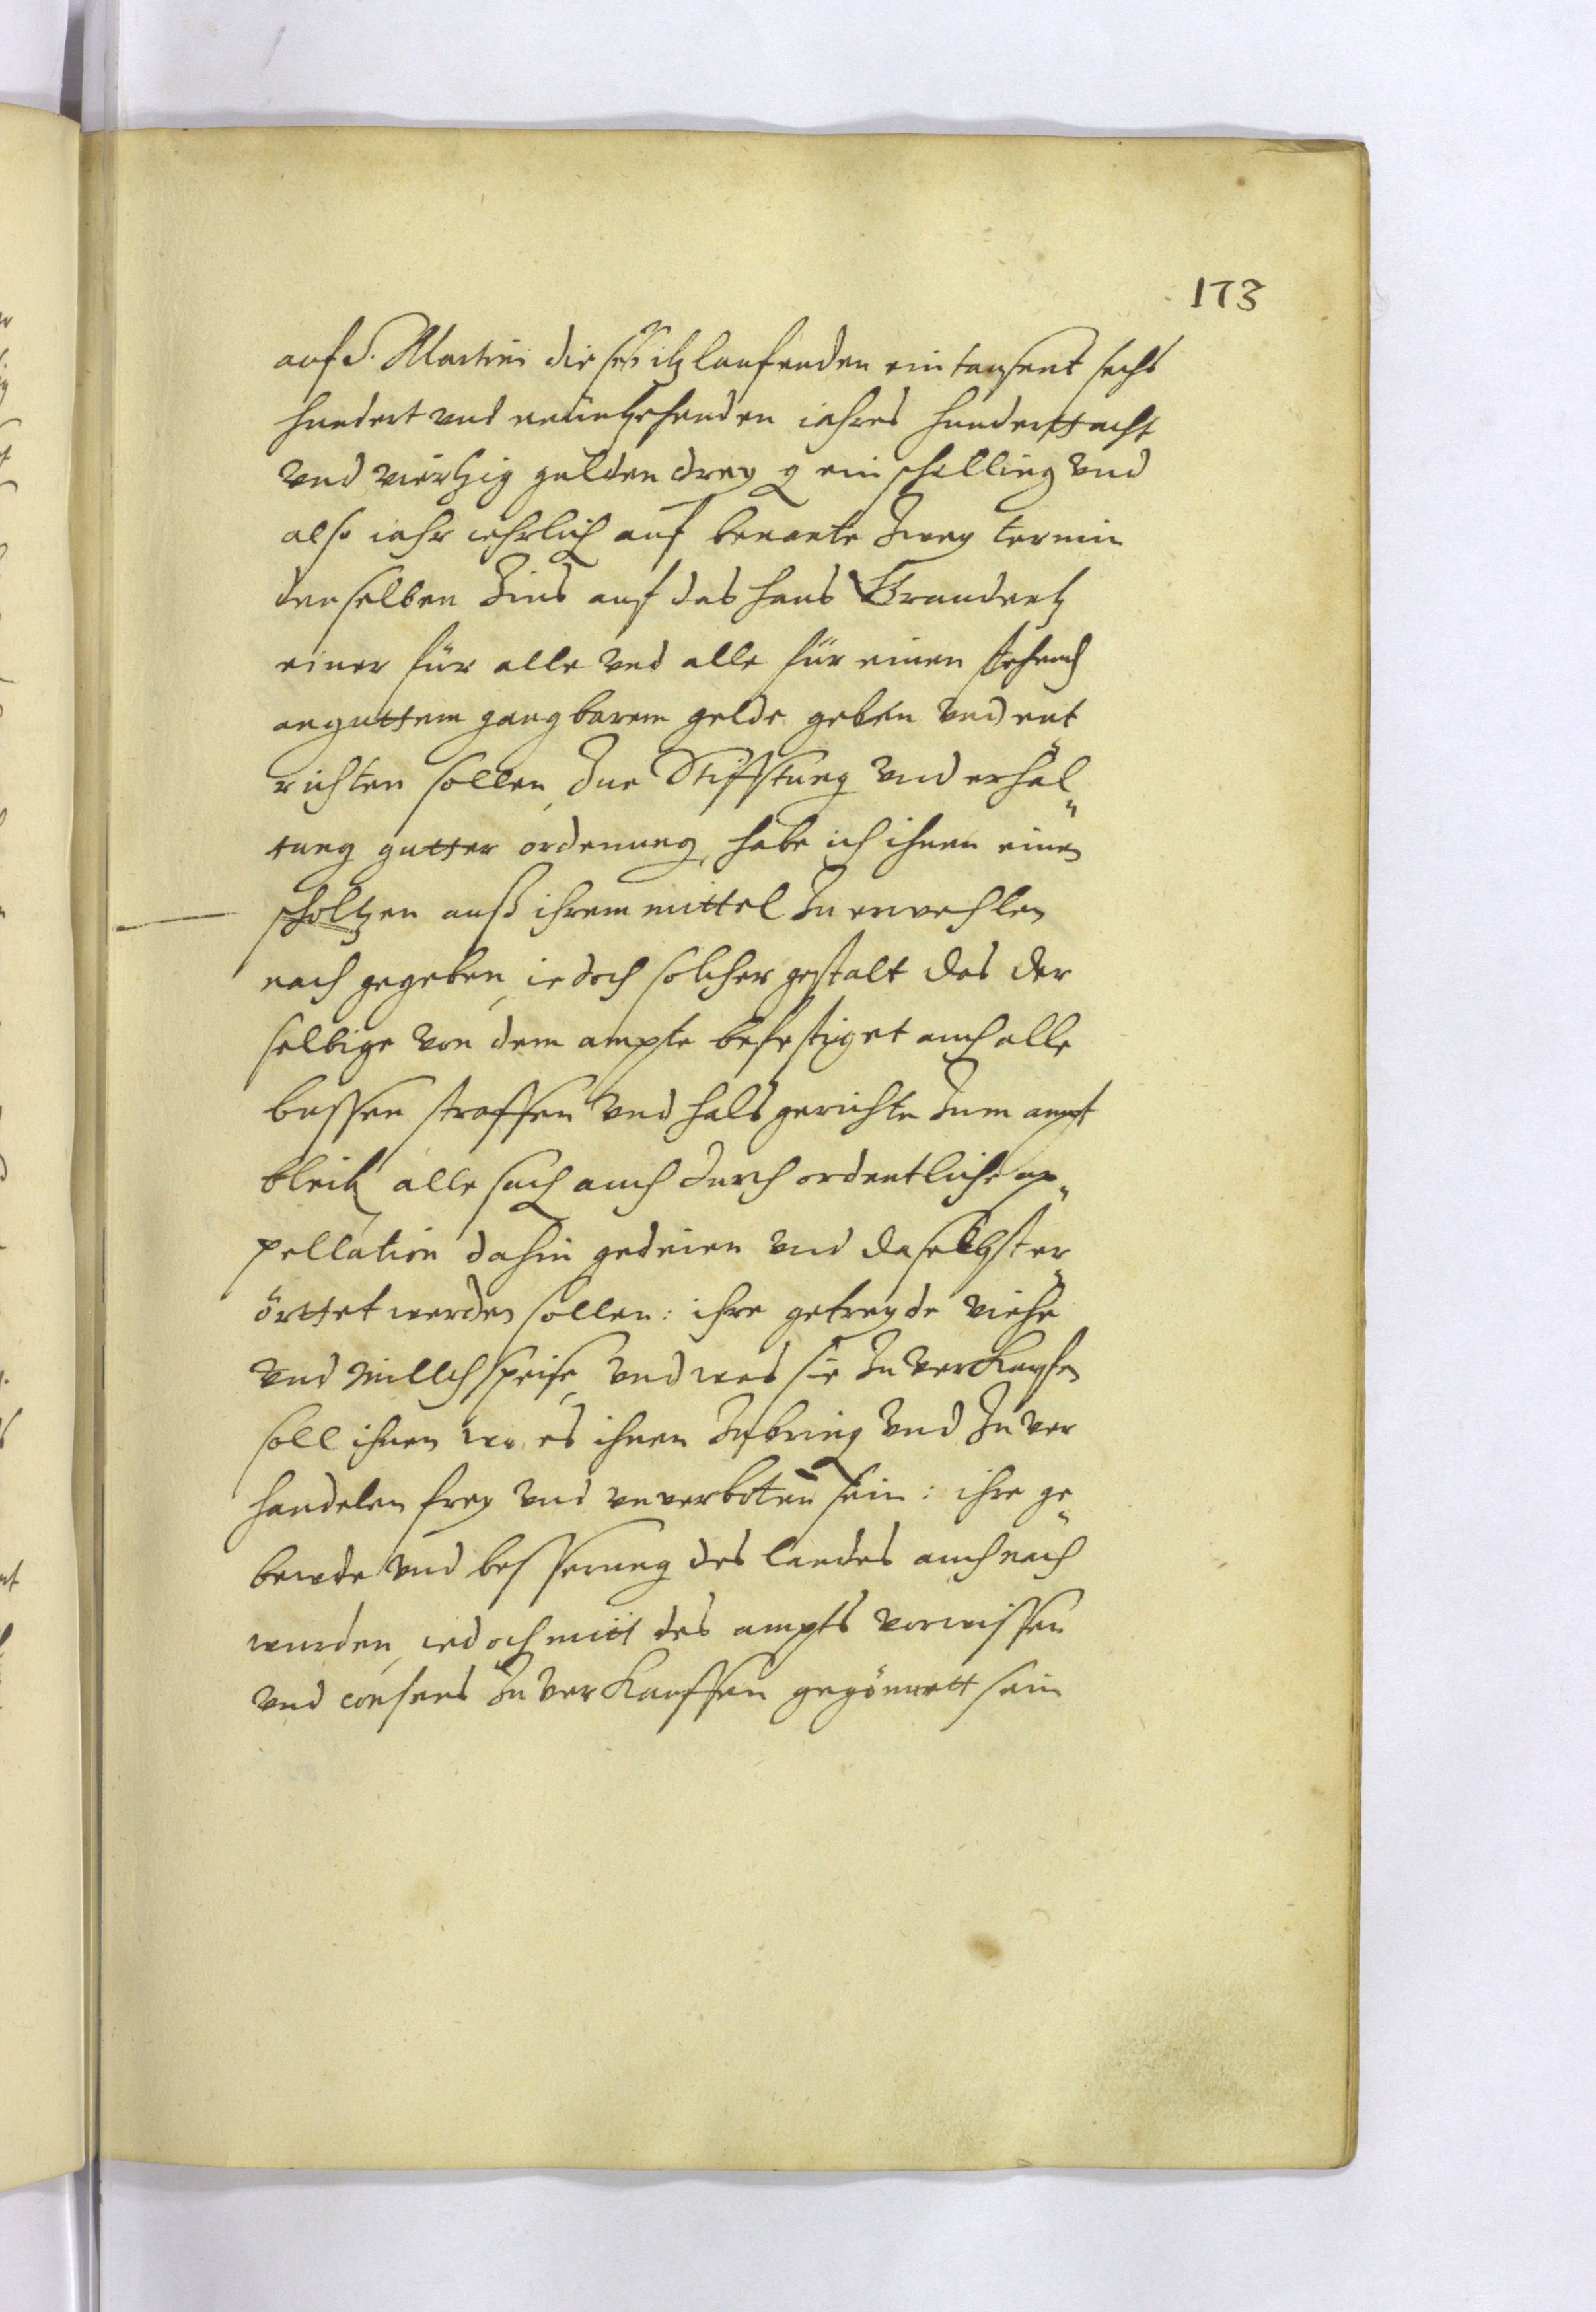 173
auf S. Martini dieses itzlaufenden ein tausent sechs
hundert vnd neüntzehenden iahres hundertt acht
vnd viertzig gulden drey g ein schilling vnd
also iahr iehrlich auf benante zwey termin
denselben Zins auf das haus Graudentz
einer für alle vnd alle für einen stehend
an guttem gangbarem gelde geben vnd ent
richten sollen, Zue Stifftung vnd erhal„
tung gutter ordenung, habe ich ihnen einen
scholtzen auß ihrem mittel zu erwehlen
nach gegeben, iedoch solcher gestalt das der
selbige von dem ampte befestiget auch alle
bussen straffen vnd halsgerichte zum ampt
bleib, alle sach auch durch ordentliche ap„
pellation dahin gedeien vnd daselbst er„
örttet werden sollen: ihre getreyde viehe
vnd Millch speise, vnd was sie zu verkaufen
soll ihnen wo es ihnen zubring vnd zu ver
handelen frey vnd vnverboten sein: ihre ge„
bewde vnd besserung des landes auch nach
wurden, iedoch mitt des ampts vorwissen
vnd consens zu verkauffen gegönnett sein